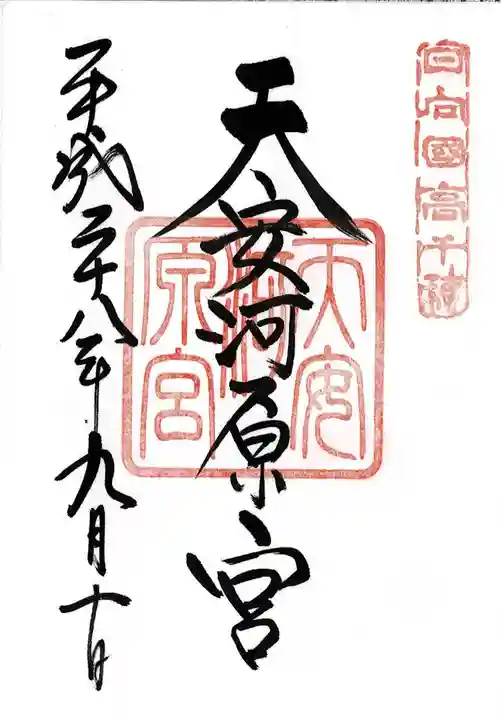 日向國高千穂
天安河原宮
天安
河
原宮
平成二十八年九月十日